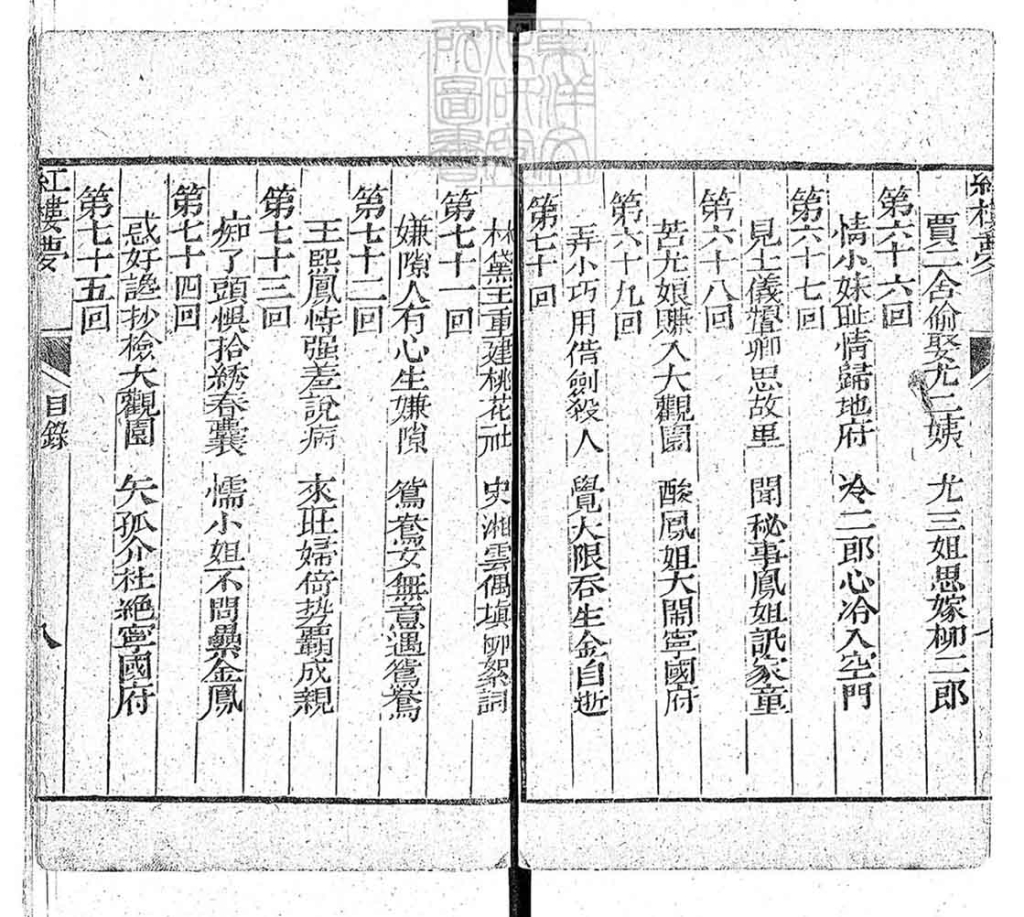 賈二舍偷娶尤二姨 尤三姐思嫁柳二郎
第六十六回
情小妹耻情歸地府 冷二郎心冷入空門
第六十七回
見土儀顰卿思故里 聞秘事鳳姐訊家童
第六十八回
苦尤娘賺入大觀園 酸鳳姐大鬧寧國府
第六十九回
弄小巧用借劍殺人 覺大限吞生金自逝
第七十回
林黛玉重建桃花社 史湘雲偶填柳絮詞
第七十一回
嫌隙人有心生嫌隙 鴛鴦女無意遇鴛鴦
第七十二回
王熙鳳恃强羞說病 來旺婦倚勢霸成親
第七十三回
痴丫頭悞拾綉春囊 懦小姐不問纍金鳳
第七十四回
惑奸讒抄檢大觀園 矢孤介杜絕寧國府
第七十五回
紅樓夢 目錄 八